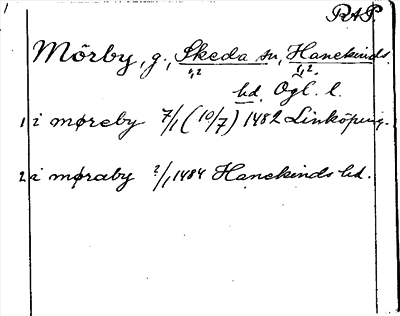 RAP.
Mörby, g., Skeda sn, Hanekinds
1,2 1,2.
hd, Ögl. l.
1 i møreby 7/1 (10/7) 1482 Linköping.
2 i møraby ?/1 1484 Hanekinds hd.